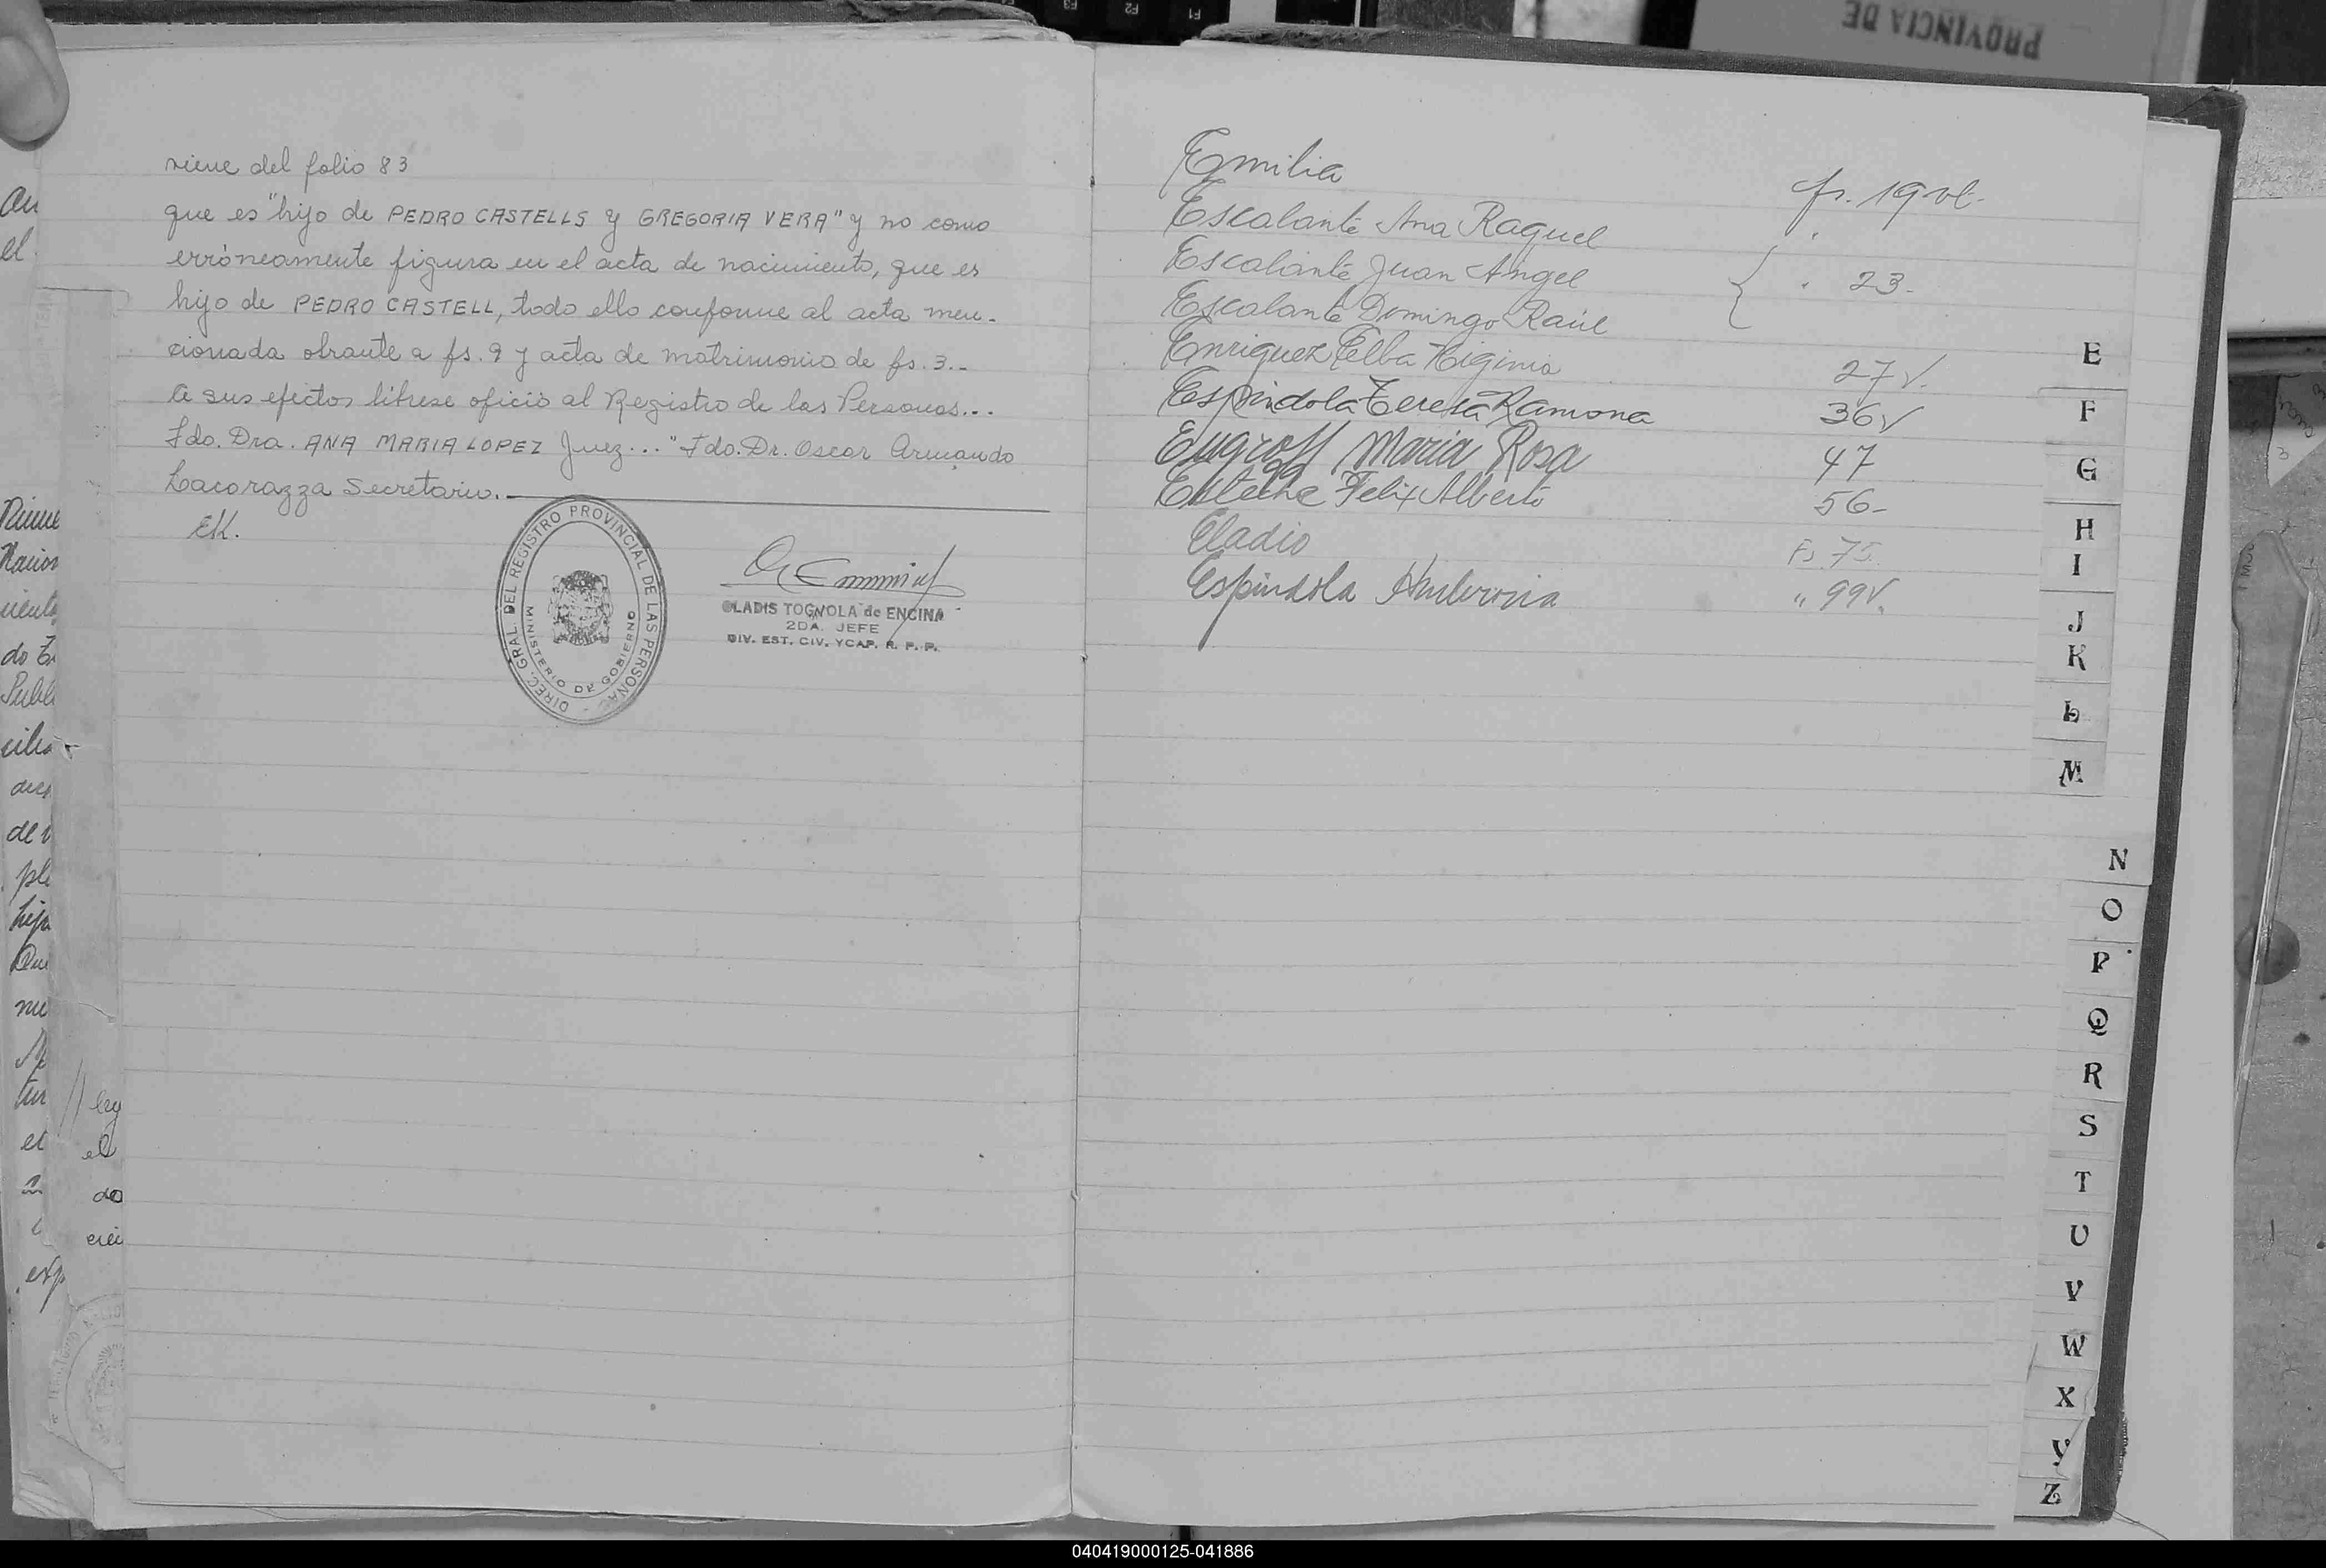 viene del folio 83
que es "hijo de PEDRO CASTELLS y GREGORIA VERA" y no como
erróneamente figura en el acta de nacimiento, que es
hijo de PEDRO CASTELL, todo ello conforme al acta men-
cionada obrante a fs. 9 y acta de matrimonio de fs. 3.-
A sus efectos líbrese oficio al Registro de las Personas...
Fdo. Dra. ANA MARIA LOPEZ Juez..." Fdo. Dr. Oscar Armando
Lacorazza Secretario.-
EK.
DIREC. GRAL. DEL REGISTRO PROVINCIAL DE LAS PERSONAS
MINISTERIO DE GOBIERNO
GLADIS TOGNOLA de ENCINA
2DA. JEFE
DIV. EST. CIV. Y CAP. R. P. P.
Emilia fs. 19 vt.
Escalante Ana Raquel
Escalante Juan Angel " 23-
Escalante Domingo Raúl
Enriquez Elba Higinia 27 v.
Espindola Teresa Ramona 36 v
Eugroff Maria Rosa 47
Esteche Felix Alberto 56-
Eladio Fs. 75
Espíndola " 99 v.
E
F
G
H
I
J
K
L
M
N
O
P
Q
R
S
T
U
V
W
X
Y
Z
PROVINCIA DE
F3
F2
F1
040419000125-041886